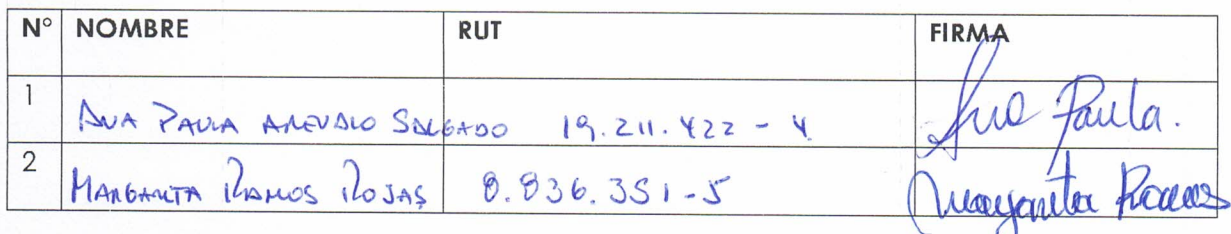 N° NOMBRE RUT FIRMA
1 ANA PAULA AREVALO SALGADO 19.211.422-4 Ana Paula.
2 MARGARITA RAMOS ROJAS 8.836.351-5 Margarita Ramos